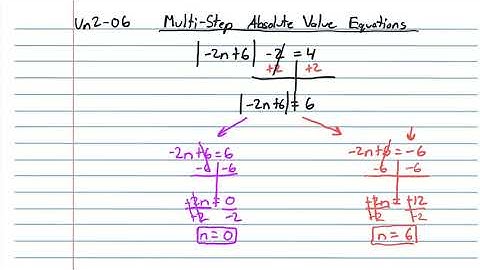 Un2-06 Multi-Step Absolute Value Equations
|-2n+6| -2 = 4
+2 +2
|-2n+6| = 6
-2n+6=6
-6 -6
-2n = 0
-2 -2
n=0
-2n+6 = -6
-6 -6
-2n = -12
-2 -2
n= 6